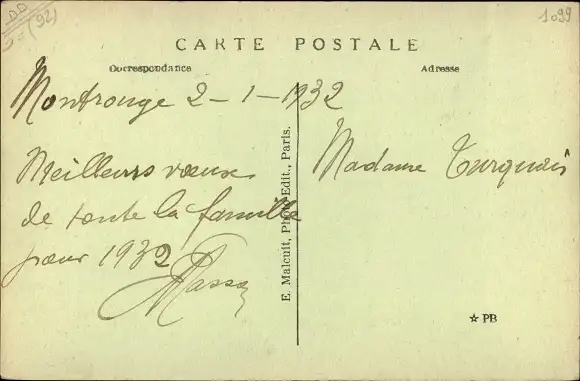 (92)
1099
CARTE POSTALE
Correspondance
Adresse
Montrouge 2-1-1932
Meilleurs vœux
de toute la famille
pour 1932
Masson
Madame Turquais
E. Malcuit, Phot. Edit., Paris.
☆ PB